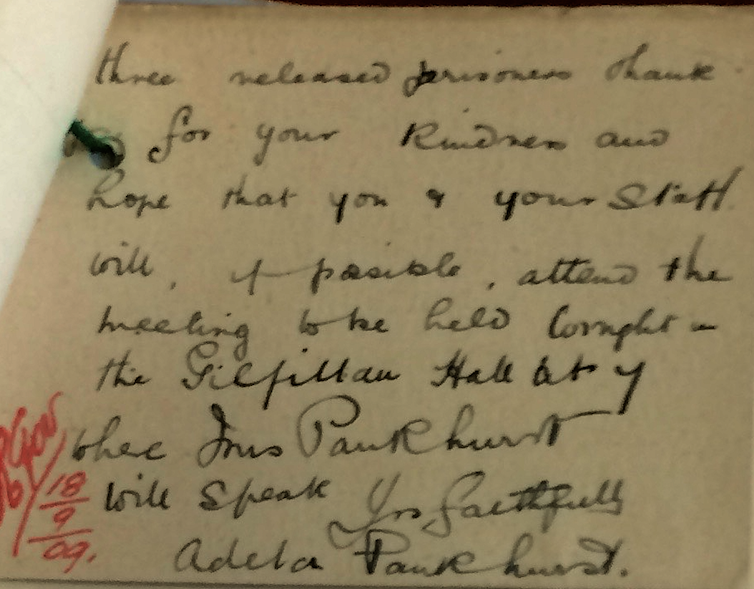 three released prisoners thank
for your kindness and
hope that you & your Staff
will, if possible, attend the
meeting to be held tonight in
the Gilfillan Hall at 7
when Mrs Pankhurst
will speak Yrs faithfully
Adela Pankhurst.
18
9
09.